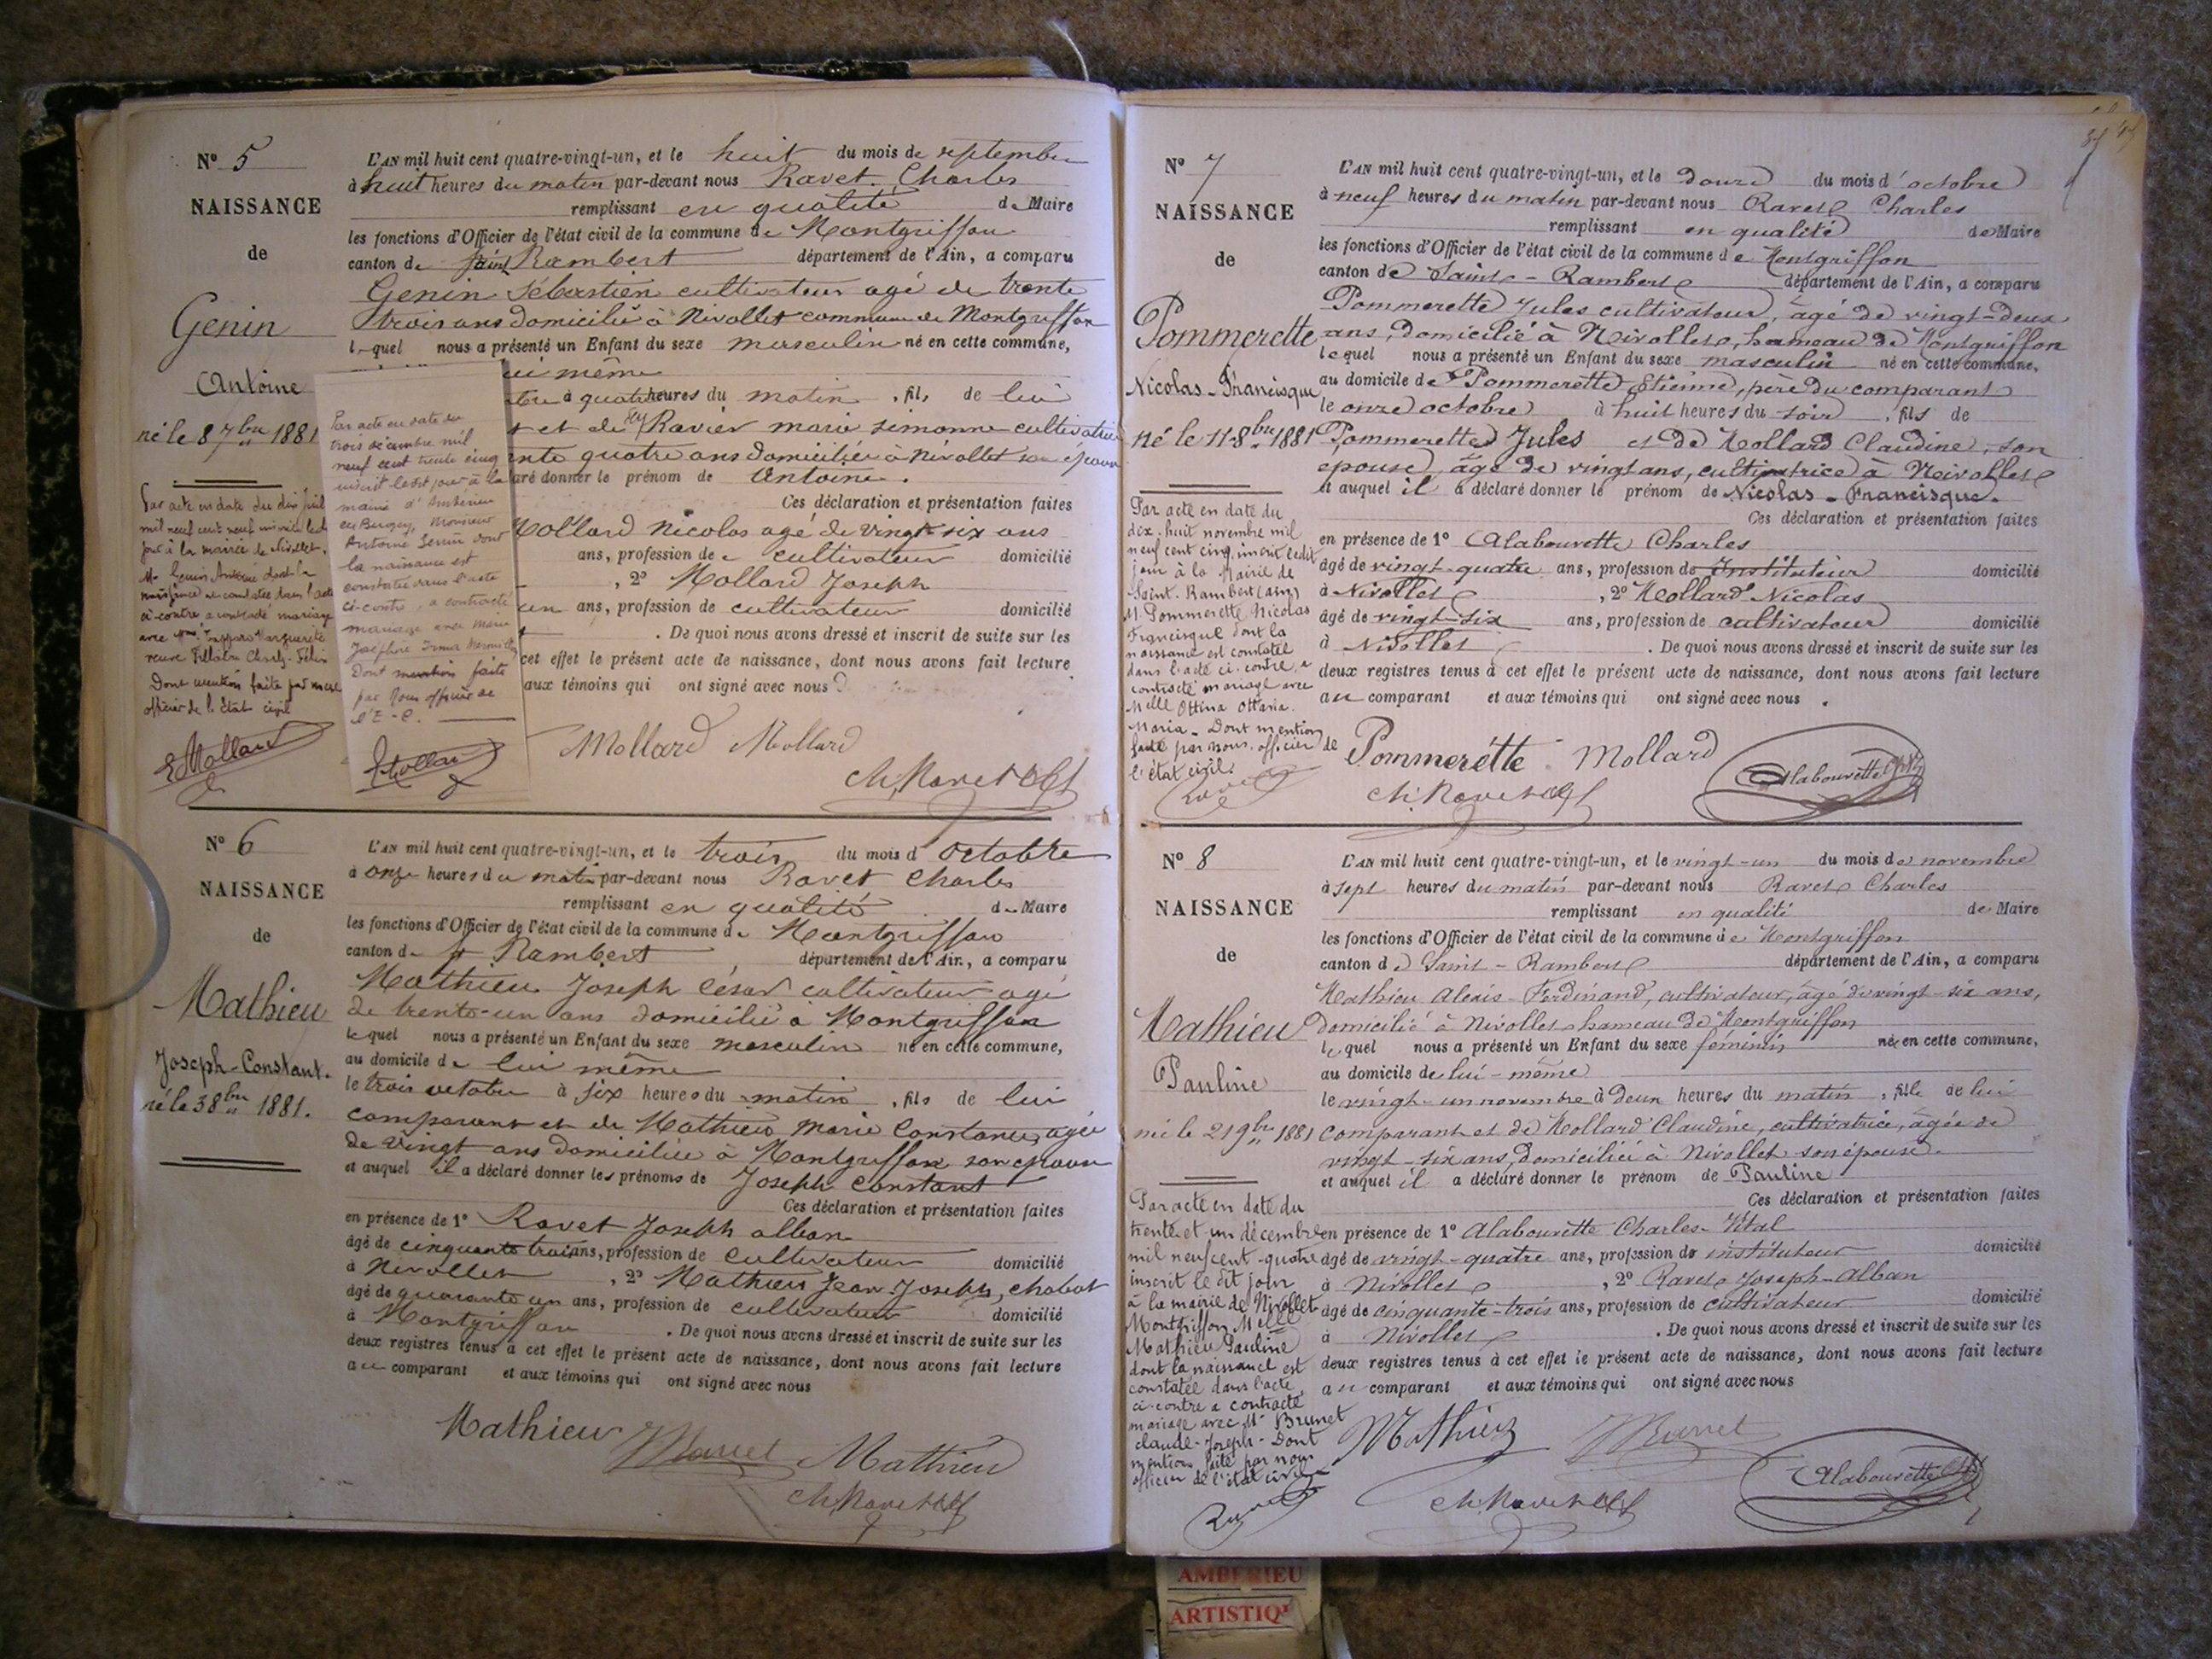 N° 5
NAISSANCE
de
Genin
Antoine
né le 8 7bre 1881
Par acte en date du
mil neuf cent neuf
jour à la mairie de Nivollet,
M. Genin Antoine dont la
naissance est constatée dans l'acte
ci-contre a contracté mariage
avec Marguerite
veuve
Dont mention faite par nous
officier de l'état civil
EMollard
Par acte en date du
trois décembre mil
neuf cent trente cinq
inscrit le dit jour à la
mairie d'Ambérieu
en Bugey, Monsieur
Antoine Genin dont
la naissance est
constatée dans l'acte
ci-contre, a contracté
mariage avec
Joséphine Irma
Dont mention faite
par Nous officier de
l'E-C.
EMollard
L'AN mil huit cent quatre-vingt-un, et le huit du mois de septembre
à huit heures du matin par-devant nous Ravet Charles
remplissant en qualité de Maire
les fonctions d'Officier de l'état civil de la commune de Montgriffon
canton de Saint Rambert département de l'Ain, a comparu
Genin Sébastien cultivateur agé de trente
trois ans domicilié à Nivollet commune de Montgriffon
lequel nous a présenté un Enfant du sexe masculin né en cette commune,
lui même
à quatre heures du matin, fils de lui
et de Ravier marie simonne cultivatrice
quatre ans domiciliée à Nivollet son épouse
donner le prénom de Antoine.
Ces déclaration et présentation faites
Mollard Nicolas agé de vingt six ans
ans, profession de cultivateur domicilié
, 2° Mollard Joseph
un ans, profession de cultivateur domicilié
. De quoi nous avons dressé et inscrit de suite sur les
cet effet le présent acte de naissance, dont nous avons fait lecture
aux témoins qui ont signé avec nous
Mollard Mollard
Ch. Ravet
N° 6
NAISSANCE
de
Mathieu
Joseph-Constant.
né le 3 8bre 1881.
L'AN mil huit cent quatre-vingt-un, et le trois du mois d'octobre
à onze heures du matin par-devant nous Ravet Charles
remplissant en qualité de Maire
les fonctions d'Officier de l'état civil de la commune de Montgriffon
canton de St Rambert département de l'Ain, a comparu
Mathieu Joseph César cultivateur agé
de trente-un ans domicilié à Montgriffon
lequel nous a présenté un Enfant du sexe masculin né en cette commune,
au domicile de lui même
le trois octobre à six heures du matin, fils de lui
comparant et de Mathieu Marie Constance, agée
de vingt ans domiciliée à Montgriffon son épouse
et auquel il a déclaré donner les prénoms de Joseph Constant
Ces déclaration et présentation faites
en présence de 1° Ravet Joseph alban
âgé de cinquante trois ans, profession de cultivateur domicilié
à Nivollet , 2° Mathieu Jean Joseph, chabot
âgé de quarante un ans, profession de cultivateur domicilié
à Montgriffon . De quoi nous avons dressé et inscrit de suite sur les
deux registres tenus à cet effet le présent acte de naissance, dont nous avons fait lecture
au comparant et aux témoins qui ont signé avec nous
Mathieu JRavet Mathieu
Ch. Ravet
N° 7
NAISSANCE
de
Pommerette
Nicolas-Francisque
né le 11-8bre 1881
Par acte en date du
dix-huit novembre mil
neuf cent cinq, inscrit ledit
jour à la Mairie de
Saint-Rambert (Ain)
M. Pommerette Nicolas
Francisque dont la
naissance est constatée
dans l'acte ci-contre, a
contracté mariage avec
Melle Ottina Ottavia
Maria. Dont mention
faite par nous officier de
l'état civil.
Ravet
L'AN mil huit cent quatre-vingt-un, et le douze du mois d'octobre
à neuf heures du matin par-devant nous Ravet Charles
remplissant en qualité de Maire
les fonctions d'Officier de l'état civil de la commune de Montgriffon
canton de Saint-Rambert département de l'Ain, a comparu
Pommerette Jules cultivateur, âgé de vingt-deux
ans, domicilié à Nivollet, hameau de Montgriffon
lequel nous a présenté un Enfant du sexe masculin né en cette commune,
au domicile de Pommerette Etienne, père du comparant
le onze octobre à huit heures du soir, fils de
Pommerette Jules et de Mollard Claudine, son
épouse, âgé de vingt ans, cultivatrice à Nivollet
et auquel il a déclaré donner le prénom de Nicolas-Francisque.
Ces déclaration et présentation faites
en présence de 1° Alabouvette Charles
âgé de vingt-quatre ans, profession de Instituteur domicilié
à Nivollet , 2° Mollard Nicolas
âgé de vingt-six ans, profession de cultivateur domicilié
à Nivollet . De quoi nous avons dressé et inscrit de suite sur les
deux registres tenus à cet effet le présent acte de naissance, dont nous avons fait lecture
au comparant et aux témoins qui ont signé avec nous.
Pommerette Mollard
Ch. Ravet Alabouvette
N° 8
NAISSANCE
de
Mathieu
Pauline
née le 21 9bre 1881
Par acte en date du
trente et un décembre
mil neuf cent quatre
inscrit le dit jour
à la mairie de Nivollet
Montgriffon Melle
Mathieu Pauline
dont la naissance est
constatée dans l'acte
ci-contre a contracté
mariage avec Mr Brunet
Claude-Joseph. Dont
mention faite par nous
officier de l'état civil
Ravet
L'AN mil huit cent quatre-vingt-un, et le vingt-un du mois de novembre
à sept heures du matin par-devant nous Ravet Charles
remplissant en qualité de Maire
les fonctions d'Officier de l'état civil de la commune de Montgriffon
canton de Saint-Rambert département de l'Ain, a comparu
Mathieu Alexis-Ferdinand, cultivateur, âgé de vingt-six ans,
domicilié à Nivollet hameau de Montgriffon
lequel nous a présenté un Enfant du sexe féminin née en cette commune,
au domicile de lui-même
le vingt-un novembre à deux heures du matin, fille de lui
comparant et de Mollard Claudine, cultivatrice, âgée de
vingt-six ans, domiciliée à Nivollet son épouse.
et auquel il a déclaré donner le prénom de Pauline
Ces déclaration et présentation faites
en présence de 1° Alabouvette Charles-Vital
âgé de vingt-quatre ans, profession de instituteur domicilié
à Nivollet , 2° Ravet Joseph-Alban
âgé de cinquante-trois ans, profession de cultivateur domicilié
à Nivollet . De quoi nous avons dressé et inscrit de suite sur les
deux registres tenus à cet effet le présent acte de naissance, dont nous avons fait lecture
au comparant et aux témoins qui ont signé avec nous
Mathieu JRavet
Ch. Ravet Alabouvette
AMBERIEU
ARTISTIQ